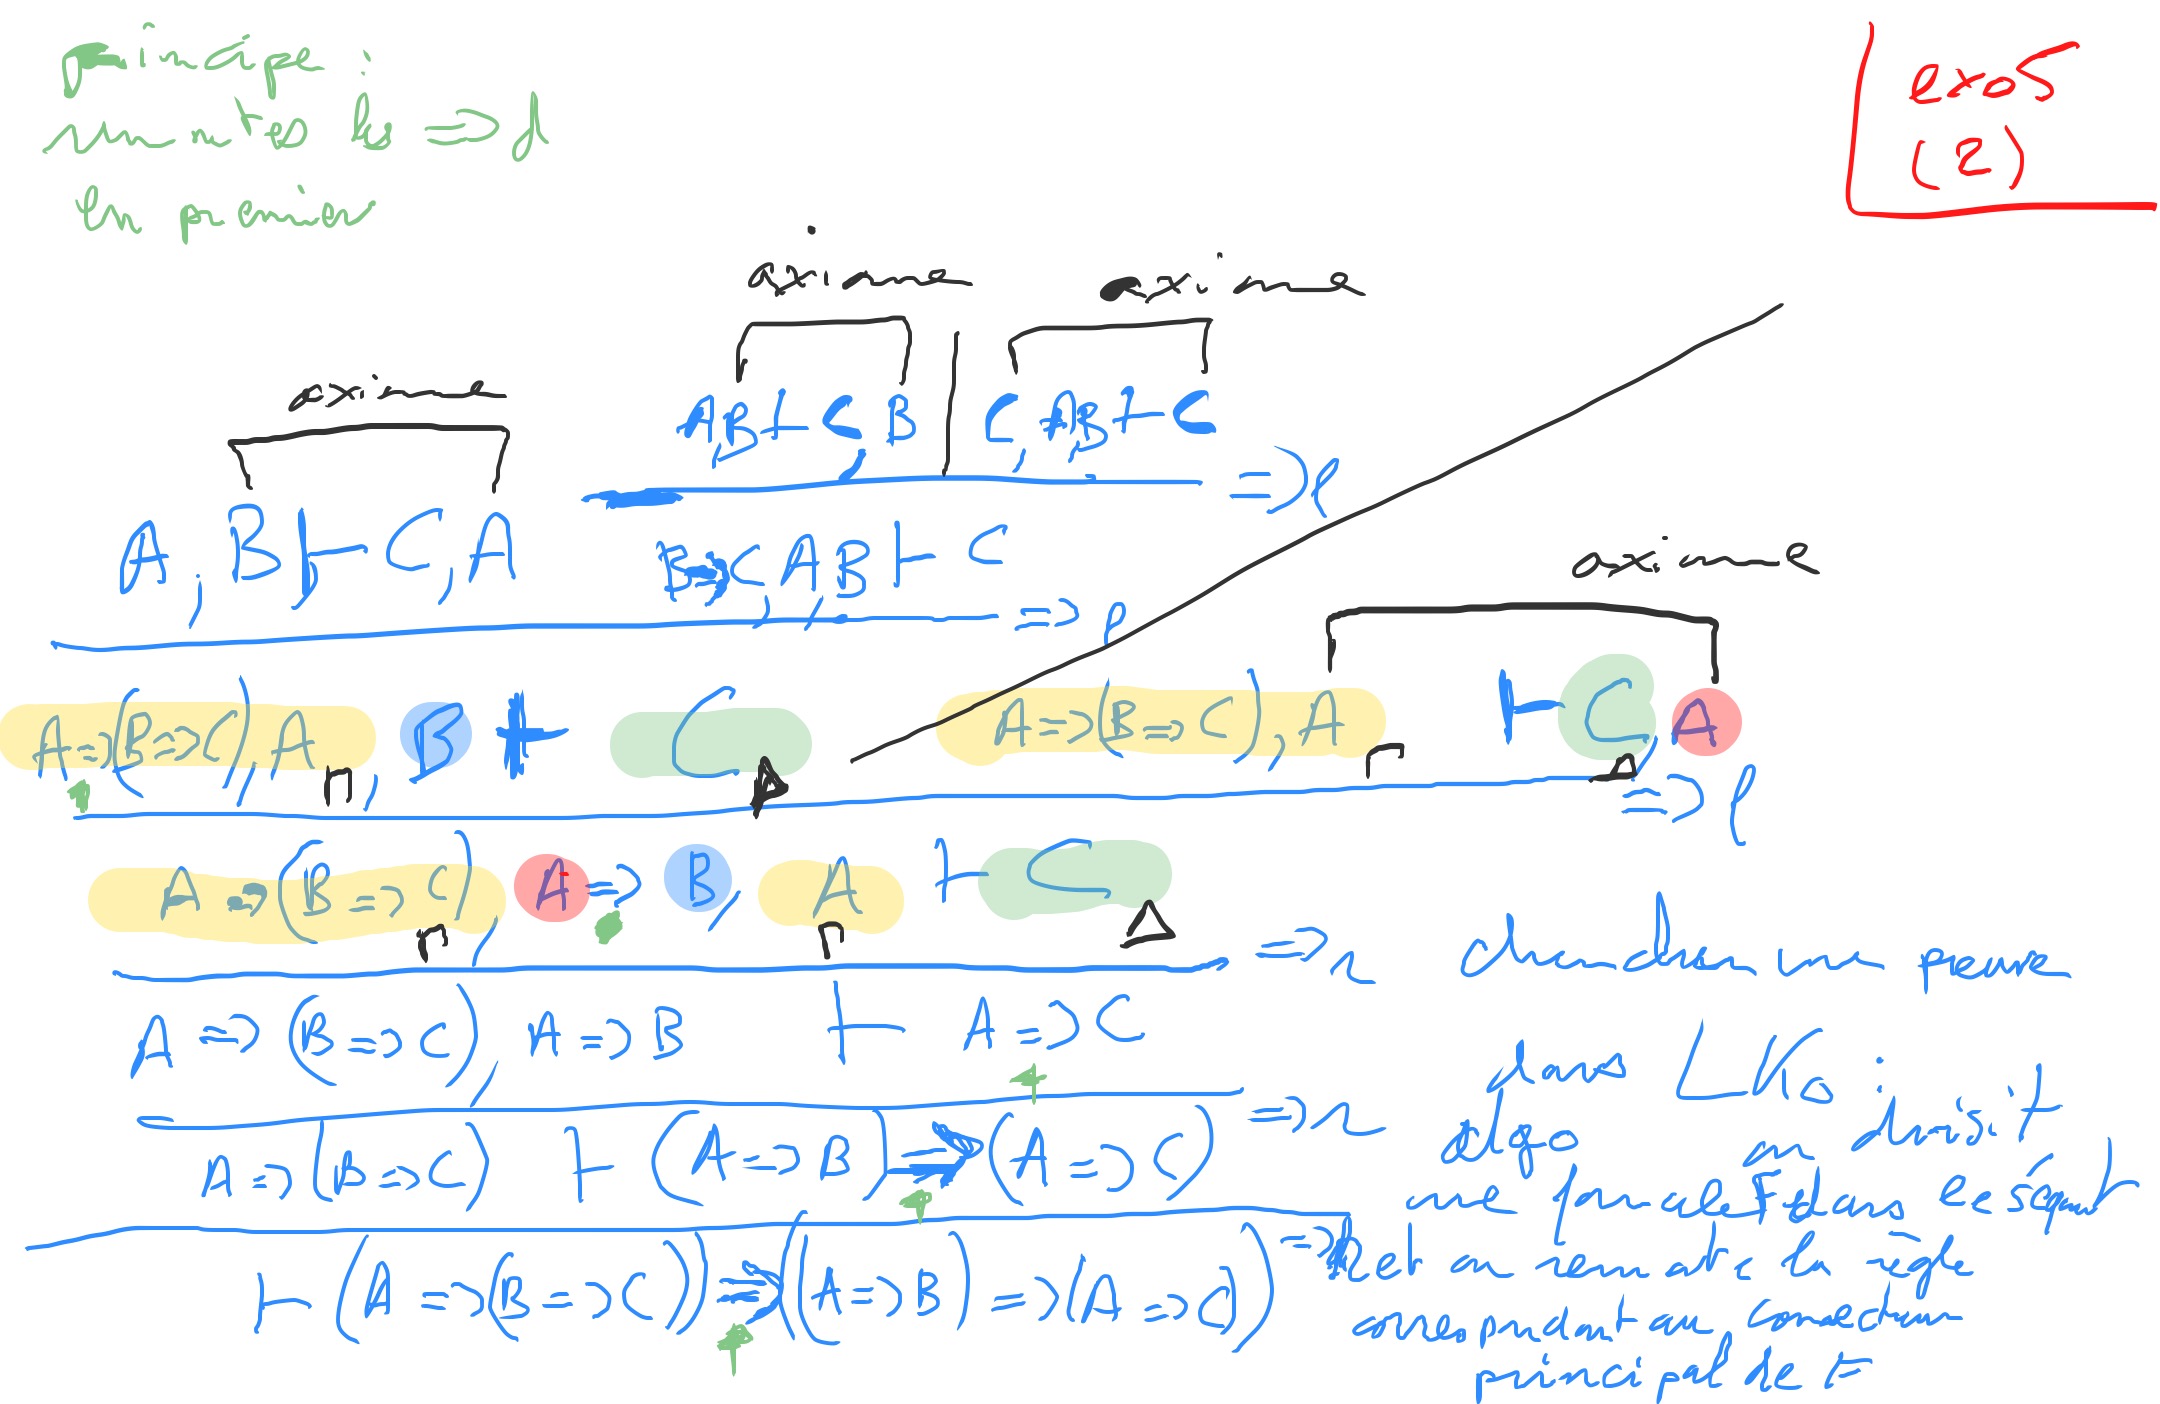 principe :
remontes les => d
en premier
exo5
(2)
axiome
axiome
axiome
A,B ⊢ C, B | C, A,B ⊢ C
=> l
A, B ⊢ C, A
B => C, A, B ⊢ C
=> l
axiome
A => (B => C), A Γ, B ⊢ C Δ
A => (B => C), A Γ ⊢ C Δ, A
=> l
A => (B => C) Γ, A => B, A Γ ⊢ C Δ
=> r
A => (B => C), A => B ⊢ A => C
=> r
A => (B => C) ⊢ (A => B) => (A => C)
=> r
⊢ (A => (B => C)) => ((A => B) => (A => C))
chercher une preuve
dans LK0 :
algo on choisit
une formule F dans le séquent
et on remonte la règle
correspondant au connecteur
principal de F